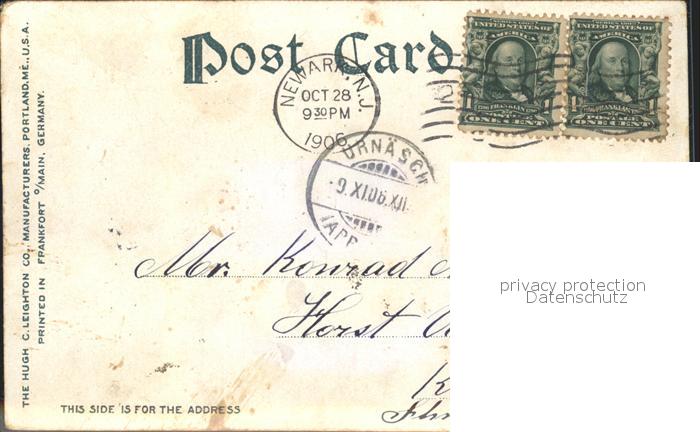 Post Card
SERIES 1902
UNITED STATES OF
AMERICA
FRANKLIN
POSTAGE
1 ONE CENT 1
SERIES 1902
UNITED STATES OF
AMERICA
FRANKLIN
POSTAGE
1 ONE CENT 1
NEWARK, N.J.
OCT 28
9 30 PM
1906
URNÄSCH
9.XI.06.XII
(APP
Mr. Konrad
Horst
privacy protection
Datenschutz
THIS SIDE IS FOR THE ADDRESS
THE HUGH C. LEIGHTON CO., MANUFACTURERS, PORTLAND, ME., U.S.A.
PRINTED IN FRANKFORT O/MAIN, GERMANY.